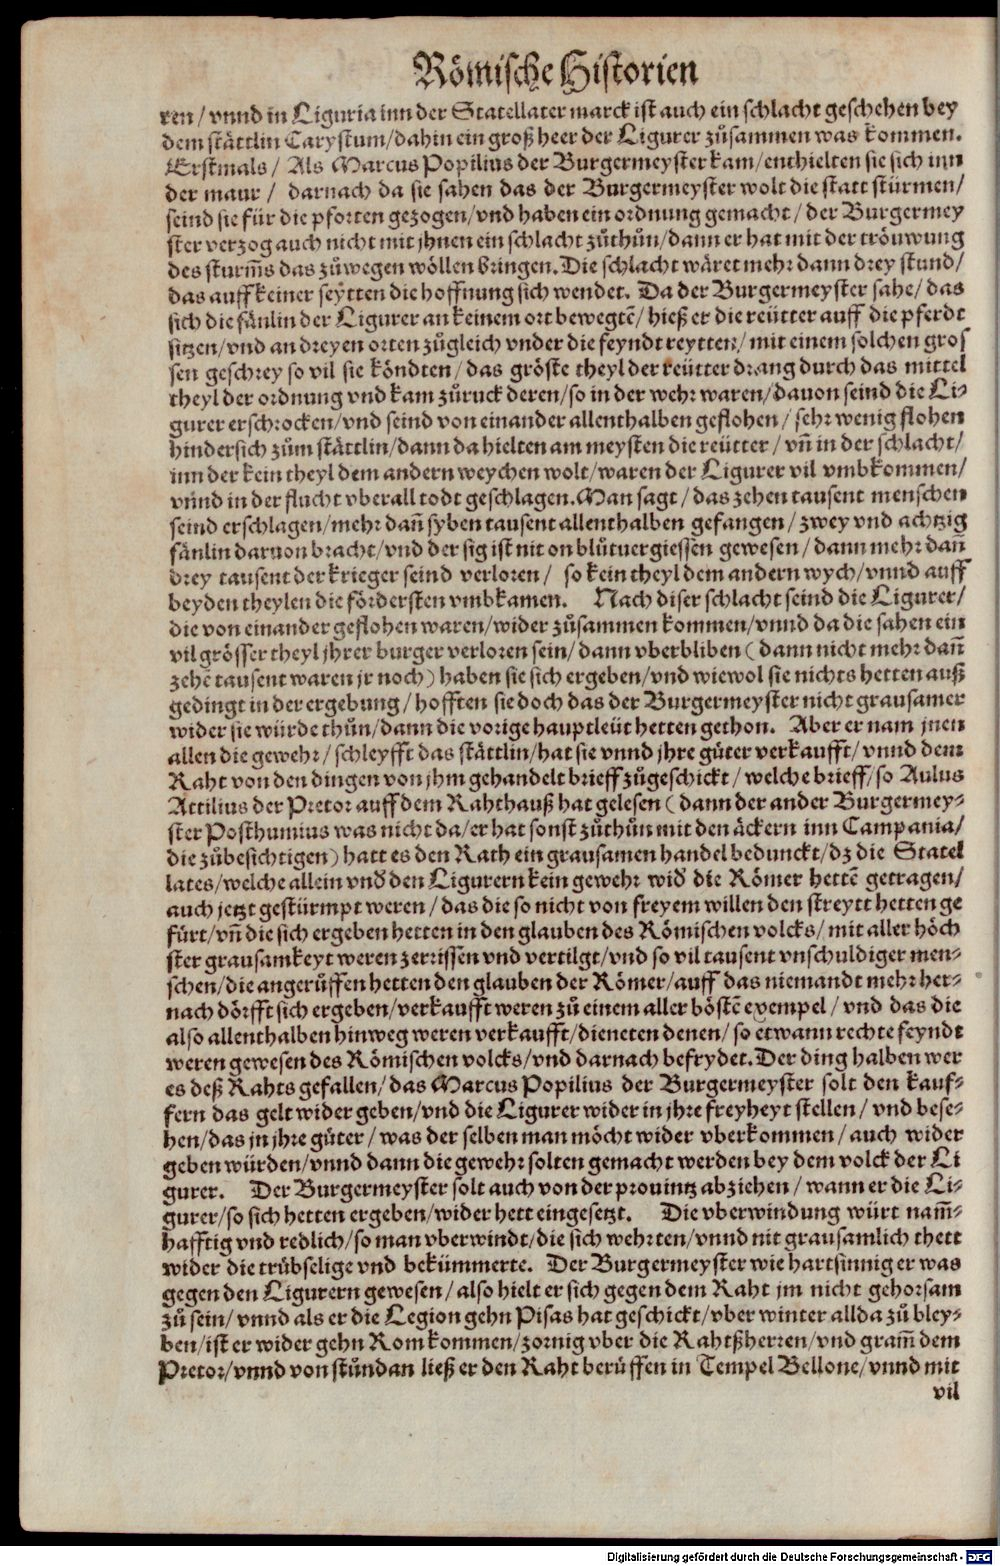 Römische Historien
ren / vnnd in Liguria inn der Statellater marck ist auch ein schlacht geschehen bey
dem stättlin Carystum/dahin ein groß heer der Ligurer zůsammen was kommen.
Erstmals / Als Marcus Popilius der Burgermeyster kam/enthielten sie sich inn
der maur / darnach da sie sahen das der Burgermeyster wolt die statt stürmen/
seind sie für die pforten gezogen/vnd haben ein ordnung gemacht / der Burgermey
ster verzog auch nicht mit jhnen ein schlacht zůthůn/dann er hat mit der tröuwung
des sturm̃s das zůwegen wöllen bringen. Die schlacht wäret mehr dann drey stund/
das auff keiner seytten die hoffnung sich wendet. Da der Burgermeyster sahe/ das
sich die fänlin der Ligurer an keinem ort bewegtẽ/ hieß er die reütter auff die pferdt
sitzen/vnd an dreyen orten zůgleich vnder die feyndt reytten/ mit einem solchen gros
sen geschrey so vil sie köndten/ das gröste theyl der reütter drang durch das mittel
theyl der ordnung vnd kam zůruck deren/so in der wehr waren/dauon seind die Li-
gurer erschrocken/vnd seind von einander allenthalben geflohen/ sehr wenig flohen
hindersich zům stättlin/dann da hielten am meysten die reütter / vñ in der schlacht/
inn der kein theyl dem andern weychen wolt/waren der Ligurer vil vmbkommen/
vnnd in der flucht vberall todt geschlagen. Man sagt / das zehen tausent menschen
seind erschlagen/mehr dañ syben tausent allenthalben gefangen/ zwey vnd achtzig
fänlin daruon bracht/vnd der sig ist nit on blůtuergiessen gewesen / dann mehr dañ
drey tausent der krieger seind verloren/ so kein theyl dem andern wych/vnnd auff
beyden theylen die fördersten vmbkamen. Nach diser schlacht seind die Ligurer/
die von einander geflohen waren/wider zůsammen kommen/vnnd da die sahen ein
vil grösser theyl jhrer burger verloren sein/ dann vberbliben ( dann nicht mehr dañ
zehẽ tausent waren jr noch ) haben sie sich ergeben/vnd wiewol sie nichts hetten auß
gedingt in der ergebung / hofften sie doch das der Burgermeyster nicht grausamer
wider sie würde thůn/dann die vorige hauptleüt hetten gethon. Aber er nam jnen
allen die gewehr/ schleyfft das stättlin/hat sie vnnd jhre güter verkaufft/vnnd dem
Raht von den dingen von jhm gehandelt brieff zůgeschickt / welche brieff/so Aulus
Attilius der Pretor auff dem Rahthauß hat gelesen ( dann der ander Burgermey-
ster Posthumius was nicht da/er hat sonst zůthůn mit den äckern inn Campania/
die zůbesichtigen ) hatt es den Rath ein grausamen handel bedunckt/dz die Statel
lates/welche allein vnđ den Ligurern kein gewehr wiđ die Römer hettẽ getragen/
auch jetzt gestürmpt weren / das die so nicht von freyem willen den streytt hetten ge
fürt/vñ die sich ergeben hetten in den glauben des Römischen volcks/ mit aller höch
ster grausamkeyt weren zerrissen vnd vertilgt/vnd so vil tausent vnschuldiger men-
schen/die angerüffen hetten den glauben der Römer/auff das niemandt mehr her-
nach dörfft sich ergeben/verkaufft weren zů einem aller böstẽ exempel / vnd das die
also allenthalben hinweg weren verkaufft/dieneten denen/ so etwann rechte feyndt
weren gewesen des Römischen volcks/vnd darnach befrydet. Der ding halben wer
es deß Rahts gefallen/ das Marcus Popilius der Burgermeyster solt den kauf-
fern das gelt wider geben/vnd die Ligurer wider in jhre freyheyt stellen / vnd bese-
hen/das jn jhre güter / was der selben man möcht wider vberkommen / auch wider
geben würden/vnnd dann die gewehr solten gemacht werden bey dem volck der Li
gurer. Der Burgermeyster solt auch von der prouintz abziehen / wann er die Li-
gurer/so sich hetten ergeben/wider hett eingesetzt. Die vberwindung würt nam̃-
hafftig vnd redlich/so man vberwindt/die sich wehrten/vnnd nit grausamlich thett
wider die trübselige vnd bekümmerte. Der Burgermeyster wie hartsinnig er was
gegen den Ligurern gewesen/ also hielt er sich gegen dem Raht jm nicht gehorsam
zů sein/ vnnd als er die Legion gehn Pisas hat geschickt/vber winter allda zů bley-
ben/ist er wider gehn Rom kommen/zornig vber die Rahtßherren/vnd gram̃ dem
Pretor/vnnd von stůndan ließ er den Raht berüffen in Tempel Bellone/vnnd mit
vil
Digitalisierung gefördert durch die Deutsche Forschungsgemeinschaft - DFG